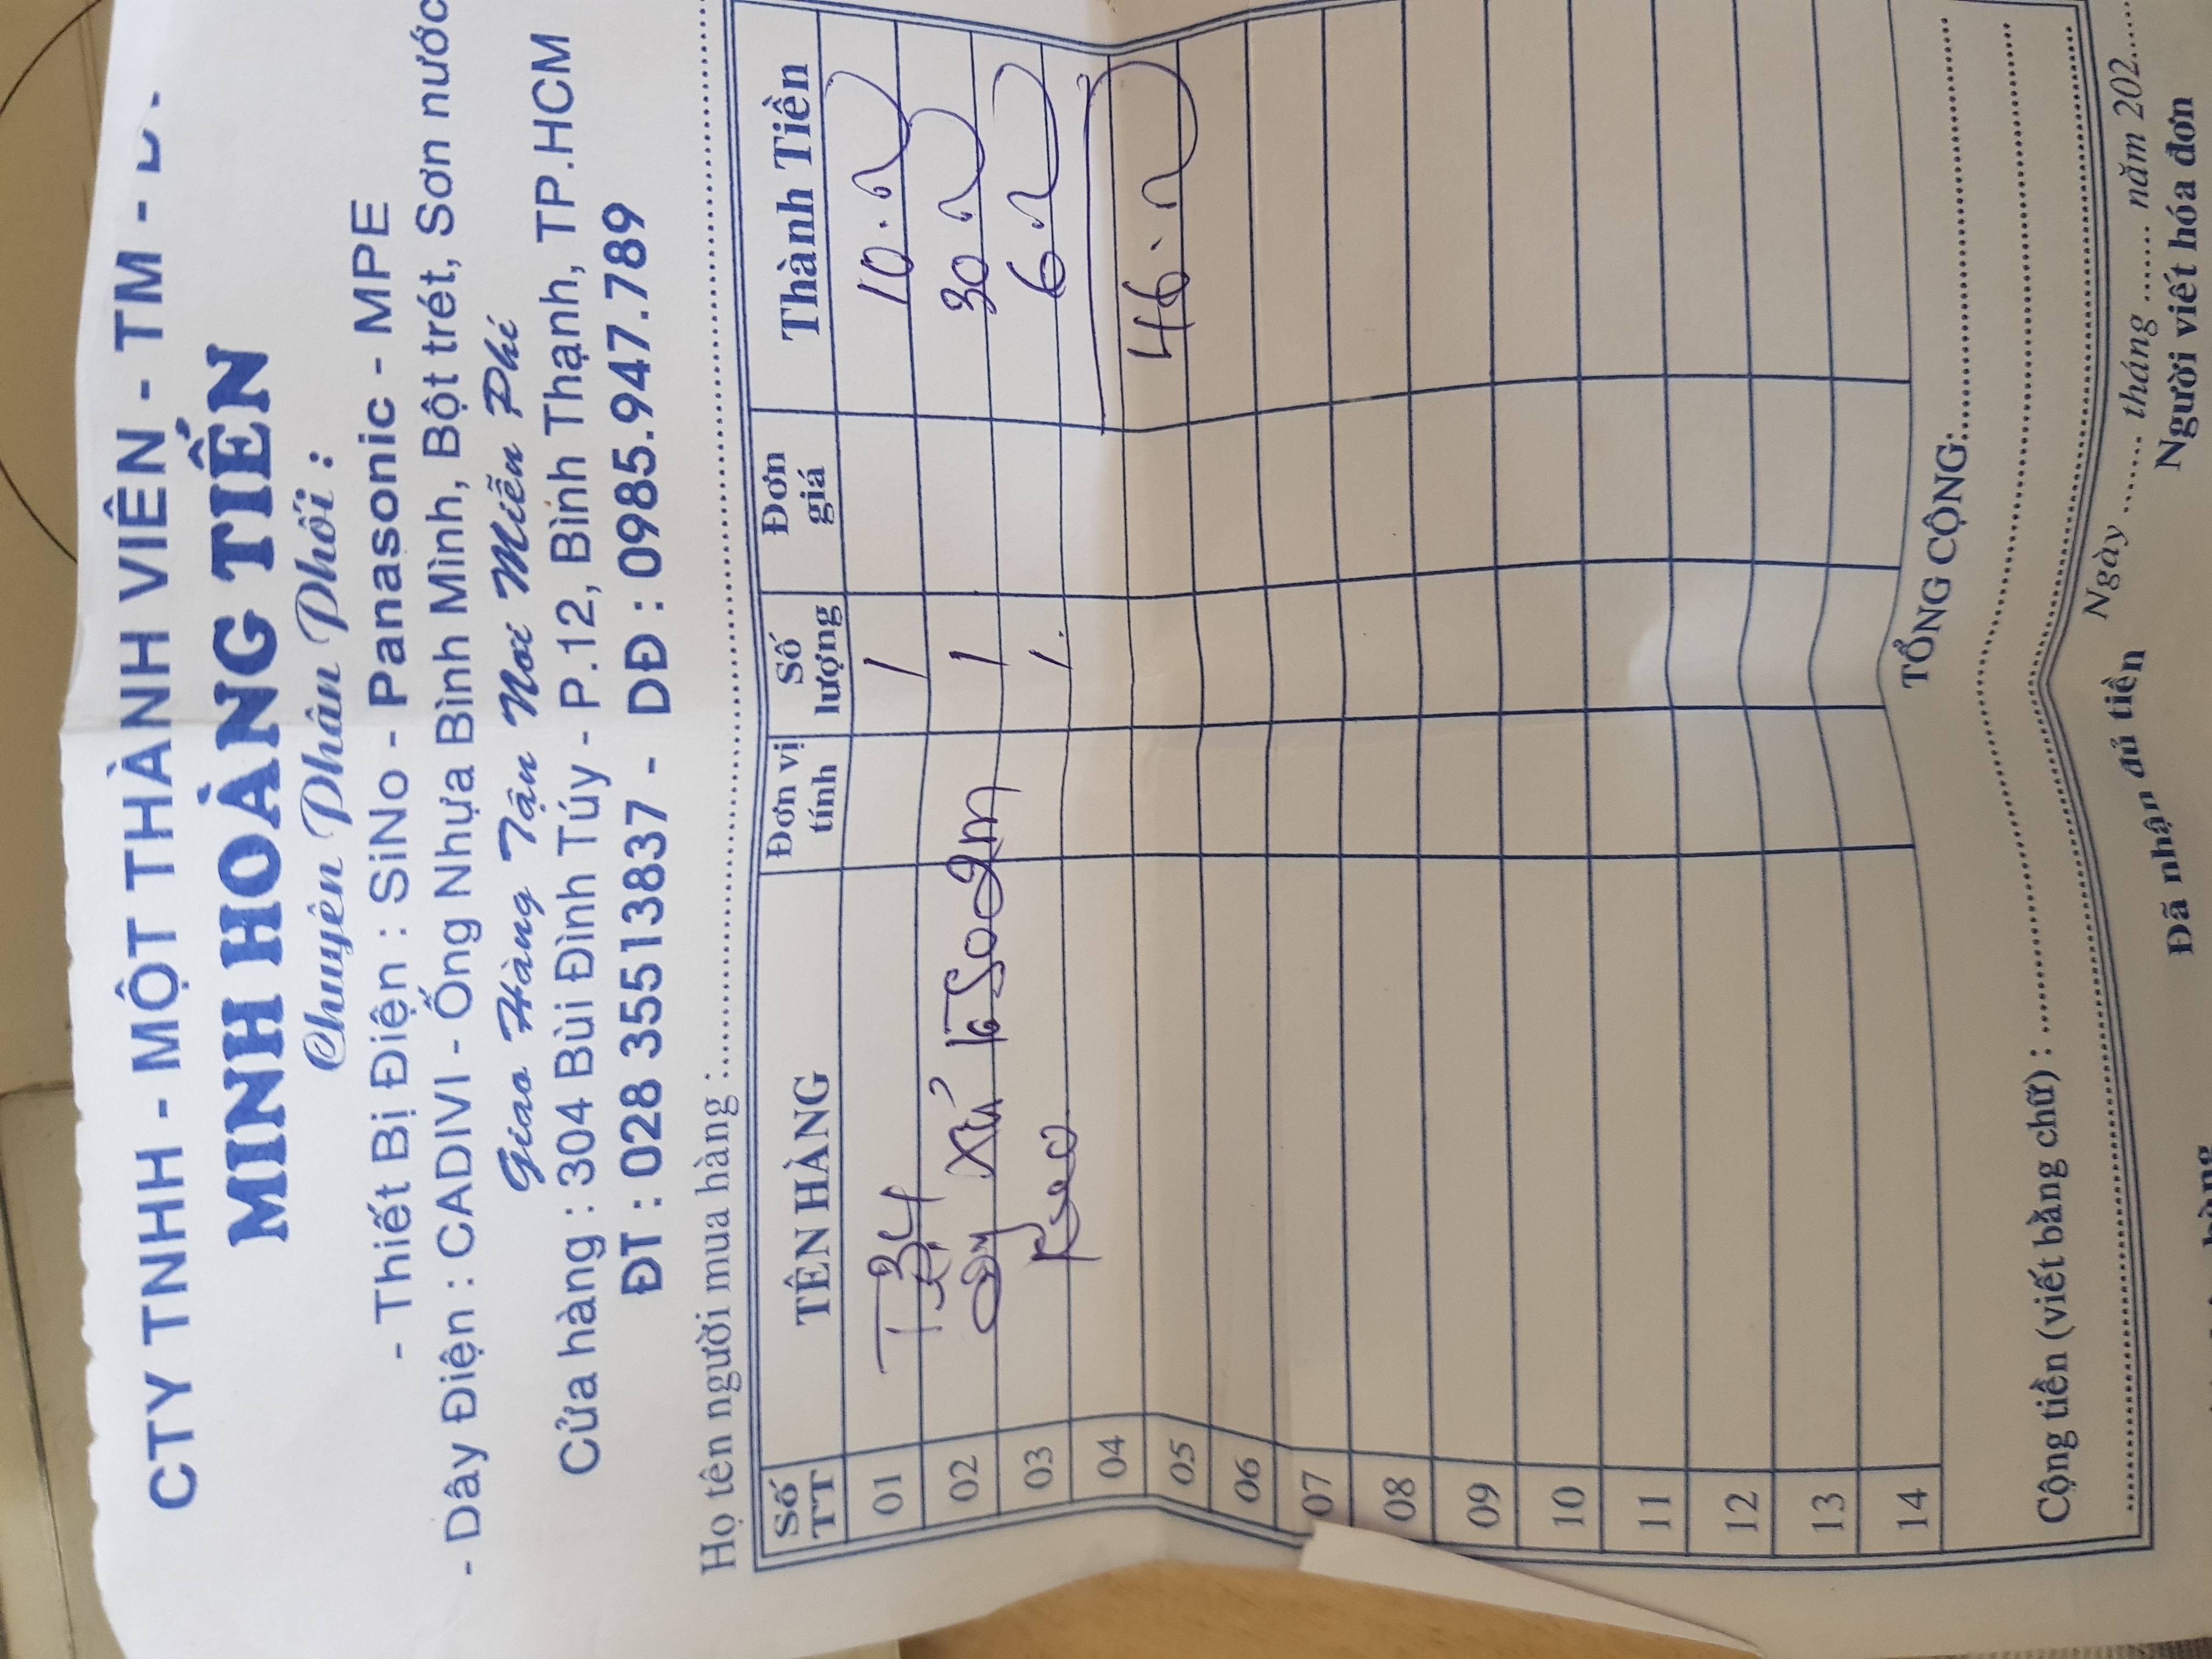 CTY TNHH - MỘT THÀNH VIÊN - TM -
MINH HOÀNG TIẾN
Chuyên Phân Phối :
- Thiết Bị Điện : SiNo - Panasonic - MPE
- Dây Điện : CADIVI - Ống Nhựa Bình Minh, Bột trét, Sơn nước
Giao Hàng Tận Nơi Miễn Phí
Cửa hàng : 304 Bùi Đình Túy - P.12, Bình Thạnh, TP.HCM
ĐT : 028 35513837 - DĐ : 0985.947.789
Họ tên người mua hàng :
Số TT TÊN HÀNG Đơn vị tính Số lượng Đơn giá Thành Tiền
01 1 10.
02 xú 1 30
03 1. 6.
04
05 46.
06
07
08
09
10
11
12
13
14
TỔNG CỘNG:
Cộng tiền (viết bằng chữ) :
Ngày ....... tháng ....... năm 202......
Đã nhận đủ tiền Người viết hóa đơn
hàng